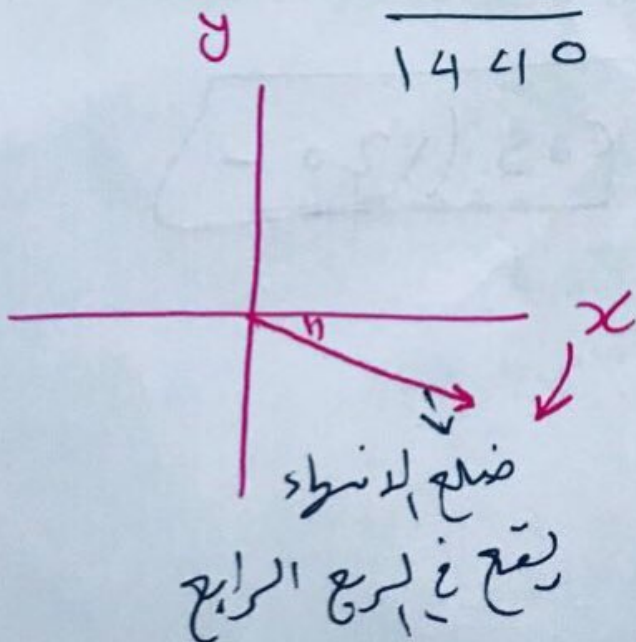 y
1440
x
ضلع الانتهاء
يقع في الربع الرابع